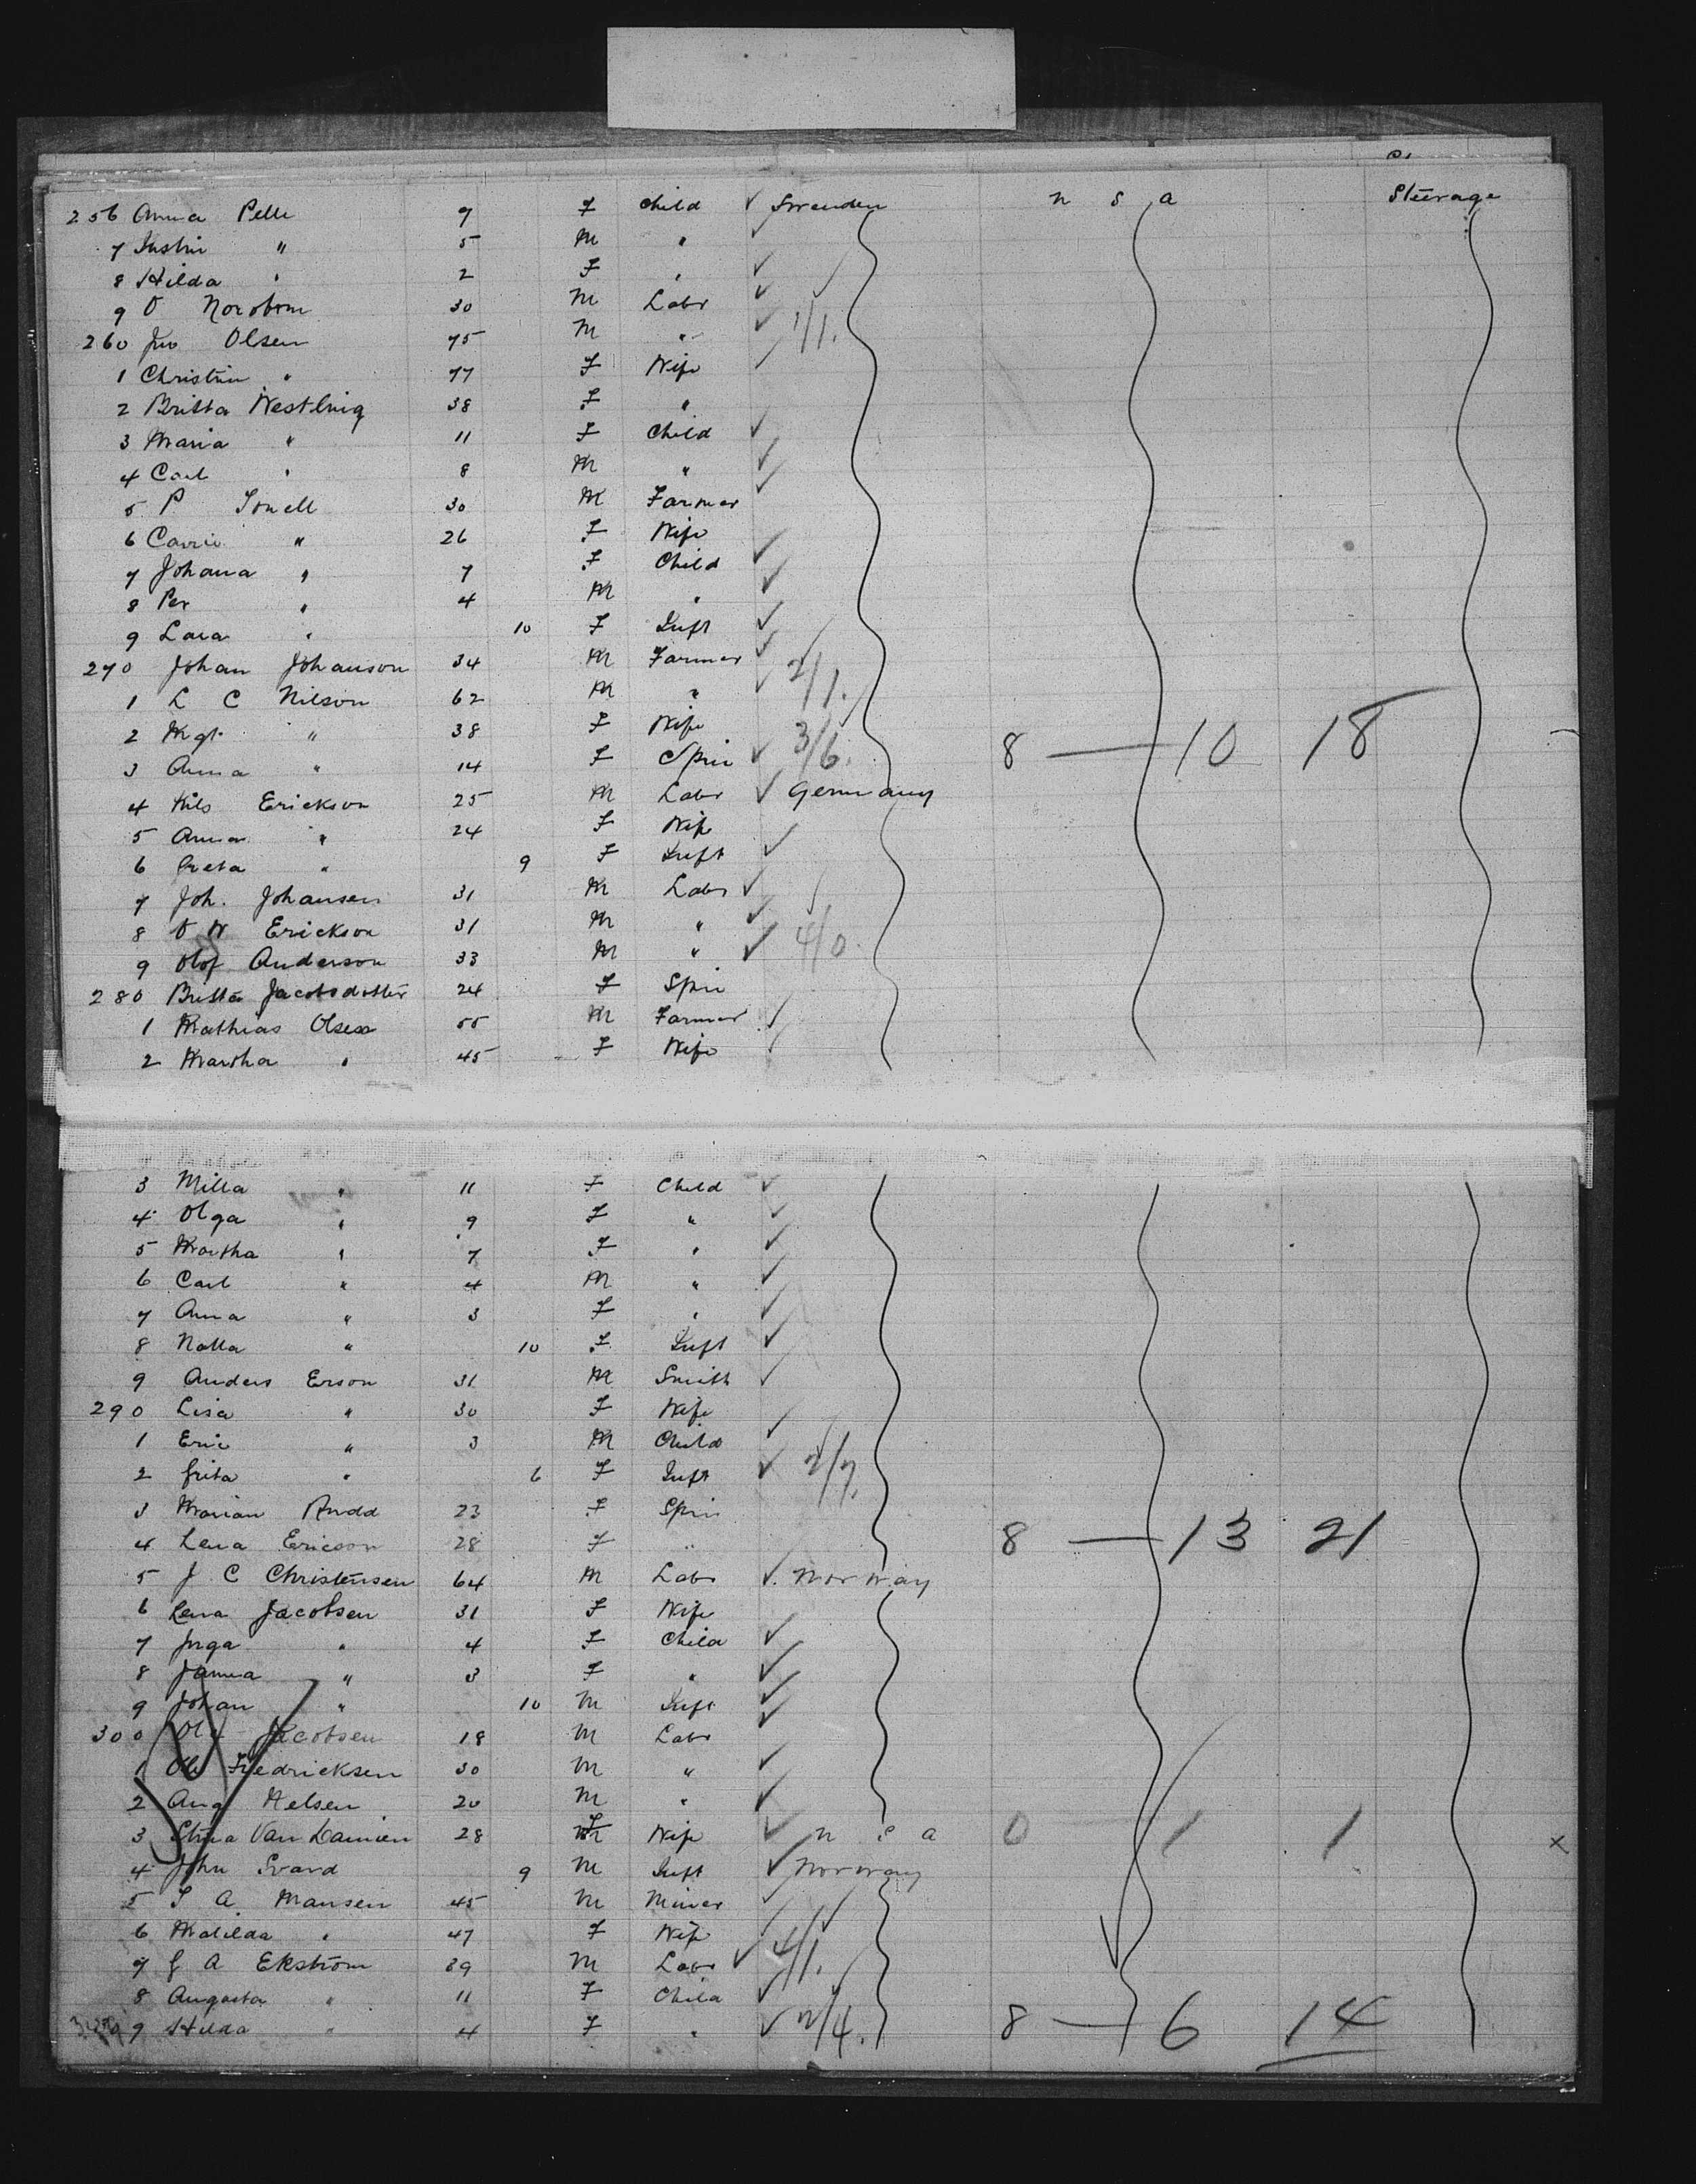 256 Anna Pelle 9 F Child ✓ Sweuden n s a Steerage
7 Justin " 5 M " ✓
8 Hilda " 2 F " ✓
9 O Norobom 30 M Labr ✓
260 Jno Olsen 75 M " ✓ 1/1.
1 Christin " 77 F Wife
2 Britta Westling 38 F "
3 Maria " 11 F Child ✓
4 Carl " 8 M " ✓
5 P 30 M Farmer ✓
6 Carrie " 26 F Wife
7 Johana " 7 F Child ✓
8 Per " 4 M " ✓
9 Lara " 10 F Inft ✓
270 Johan Johanson 34 M Farmer ✓
1 L C Nilson 62 M " ✓ 2/1.
2 Mgt. " 38 F Wife
3 Anna " 14 F Spin ✓ 3/6. 8 — 10 18
4 Nils Erickson 25 M Labr ✓ Germany
5 Anna " 24 F Wife
6 Greta " 9 F Inft ✓
7 Joh. Johansen 31 M Labr ✓
8 O W Erickson 31 M " ✓
9 Olof Anderson 33 M " ✓ 4/0.
280 Britta Jacobsdotter 24 F Spin
1 Mathias Olsen 55 M Farmer ✓
2 Martha " 45 F Wife
3 Milla " 11 F Child ✓
4 Olga " 9 F " ✓
5 Martha " 7 F " ✓
6 Carl " 4 M " ✓
7 Anna " 3 F " ✓
8 Nalla " 10 F Inft ✓
9 Anders Erson 31 M Smith ✓
290 Lisa " 30 F Wife
1 Eric " 3 M Child ✓
2 Grita " 6 F Inft ✓ 2/7.
3 Marian Rudd 23 F Spin
4 Lena Ericson 28 F " 8 — 13 21
5 J C Christensen 64 M Labr ✓ Norway
6 Lena Jacobsen 31 F Wife
7 Inga " 4 F Child ✓
8 Janna " 3 F " ✓
9 Johan " 10 M Inft ✓
300 Ole Jacobsen 18 M Labr ✓
1 Ole Fredricksen 30 M " ✓
2 Aug Nelsen 20 M " ✓
3 Van Damien 28 F Wife ✓ n s a 0 — 1 1 x
4 John Svard 9 M Inft ✓ Norway
5 A Mansen 45 M Miner ✓
6 Matilda " 47 F Wife ✓
7 G A Ekstrom 39 M Labr ✓ 4/1.
8 Augusta " 11 F Child ✓
9 Hilda " 4 F " ✓ 2/4. 8 — 6 14